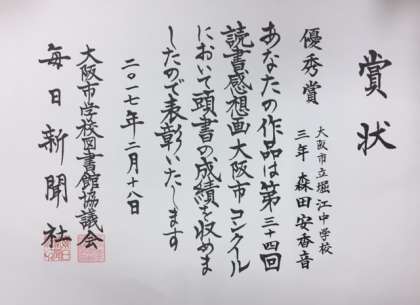 賞状
優秀賞
大阪市立堀江中学校
三年 森田安香音
あなたの作品は第三十四回
読書感想画大阪市コンクール
において頭書の成績を収めま
したので表彰いたします
二〇一七年二月十八日
大阪市学校図書館協議会
毎日新聞社